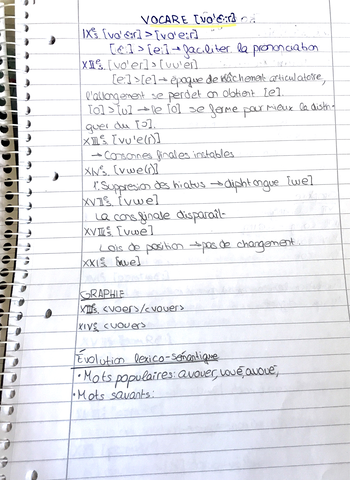 VOCARE [vo'é:r]
IXᵉs. [vo'é:r] > [vo'e:r]
[é:] > [e:] → faciliter la prononciation
XIIᵉs. [vo'er] > [vu'er]
[e:] > [e] → époque de relâchement articulatoire,
l'allongement se perd et on obtient [e].
[o] > [u] → le [o] se ferme pour mieux la distin-
guer du [ɔ].
XIIIᵉs. [vu'e(r)]
→ Consonnes finales instables
XIVᵉs. [vwe(r)]
1. Suppresion des hiatus → diphtongue [we]
XVIIᵉs. [vwe]
La cons. finale disparaît
XVIIIᵉs. [vwe]
Lois de position → pas de changement
XXIᵉs. [vwe]
GRAPHIE
XIIᵉs. <voer>/<vouer>
XIVᵉs. <vouer>
Évolution lexico-sémantique
• Mots populaires: avouer, voué, avoué,
• Mots savants: